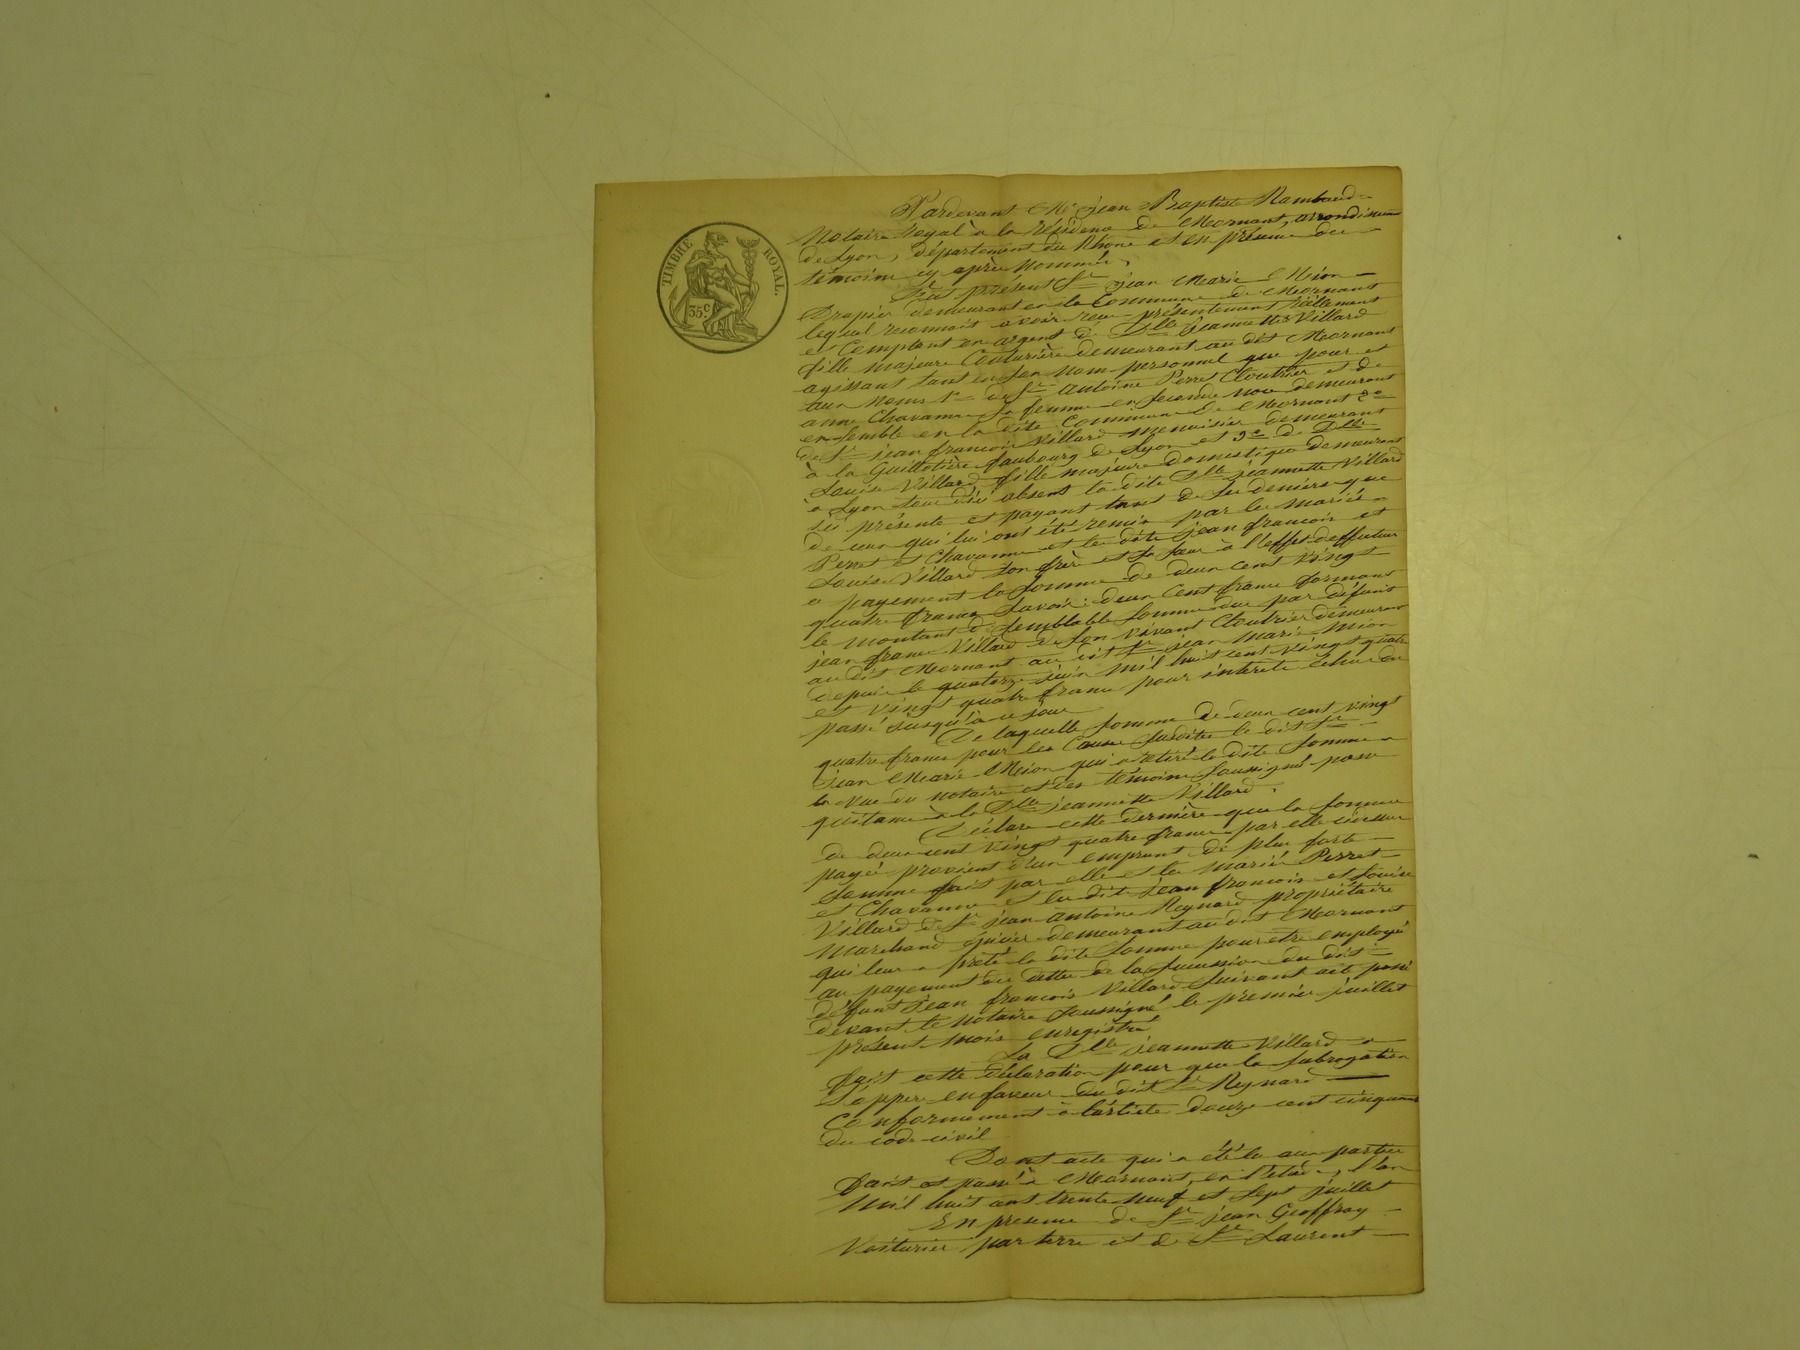 TIMBRE ROYAL.
35 C.
Pardevant Me jean Baptiste Rambaud
Notaire royal à la résidence de Mornant, arrondissement
de Lyon, département du Rhône et en présence des
témoins cy après nommés,
Fut présent Sr jean Marie Mion
Drapier demeurant en la Commune de Mornant
lequel reconnait avoir reçu présentement réellement
et Comptant en argent de Dlle Jeannette Villard
fille majeure Couturière demeurant au dit Mornant
agissant tant en son nom personnel que pour et
aux noms 1° de Sr Antoine Perret Cloutrier et de
anne Chavanne sa femme en seconde noce demeurant
ensemble en la dite Commune de Mornant 2°
de Sr jean françois Villard menuisier demeurant
à la Guillotière faubourg de Lyon et 3° de Dlle
Louise Villard fille majeure domestique demeurant
à Lyon tous ici absent la dite Dlle jeannette Villard
ici présente et payant tant de ses deniers que
de ceux qui lui ont été remis par les mariés
Perret et Chavanne et les dits jean françois et
Louise Villard son frère et sa sœur à l'effet d'effectuer
ce payement la somme de deux cent vingt
quatre francs Savoir: deux Cent francs formant
le montant de semblable Somme due par défunt
jean franc Villard de son vivant Cloutrier demeurant
au dit Mornant au dit Sr jean Marie Mion
depuis le quatorze juin mil huit cent vingt quatre
et vingt quatre francs pour intérêts échus du
passé jusqu'à ce jour
De laquelle somme de deux cent vingt
quatre francs pour les Causes susdites le dit Sr
jean Marie Mion qui a retiré la dite Somme
en vue du notaire et des témoins soussignés passe
quitance à la Dlle jeannette Villard.
Déclare cette dernière que la somme
de deux cent vingt quatre francs par elle cidessus
payée provient d'un emprunt de plus forte
somme fait par elle et les mariés Perret
et Chavanne et les dits jean françois et Louise
Villard de Sr jean Antoine Reynard propriétaire
Marchand épicier demeurant au dit Mornant
qui leur a prêté la dite somme pour être employé
au payement des dettes de la succession du dit
défunt jean françois Villard suivant acte passé
devant le notaire soussigné le premier juillet
présent mois enregistré
La Dlle jeannette Villard a
fait cette déclaration pour que la subrogation
s'opère en faveur du dit Sr Reynard
Conformement à l'article douze cent cinquante
du code civil
Dont acte qui a été lu aux parties
Fait et passé à Mornant, en l'étude, l'an
Mil huit cent trente neuf et sept juillet
En présence de Sr jean Geoffray
Voiturier par terre et de Sr Laurent